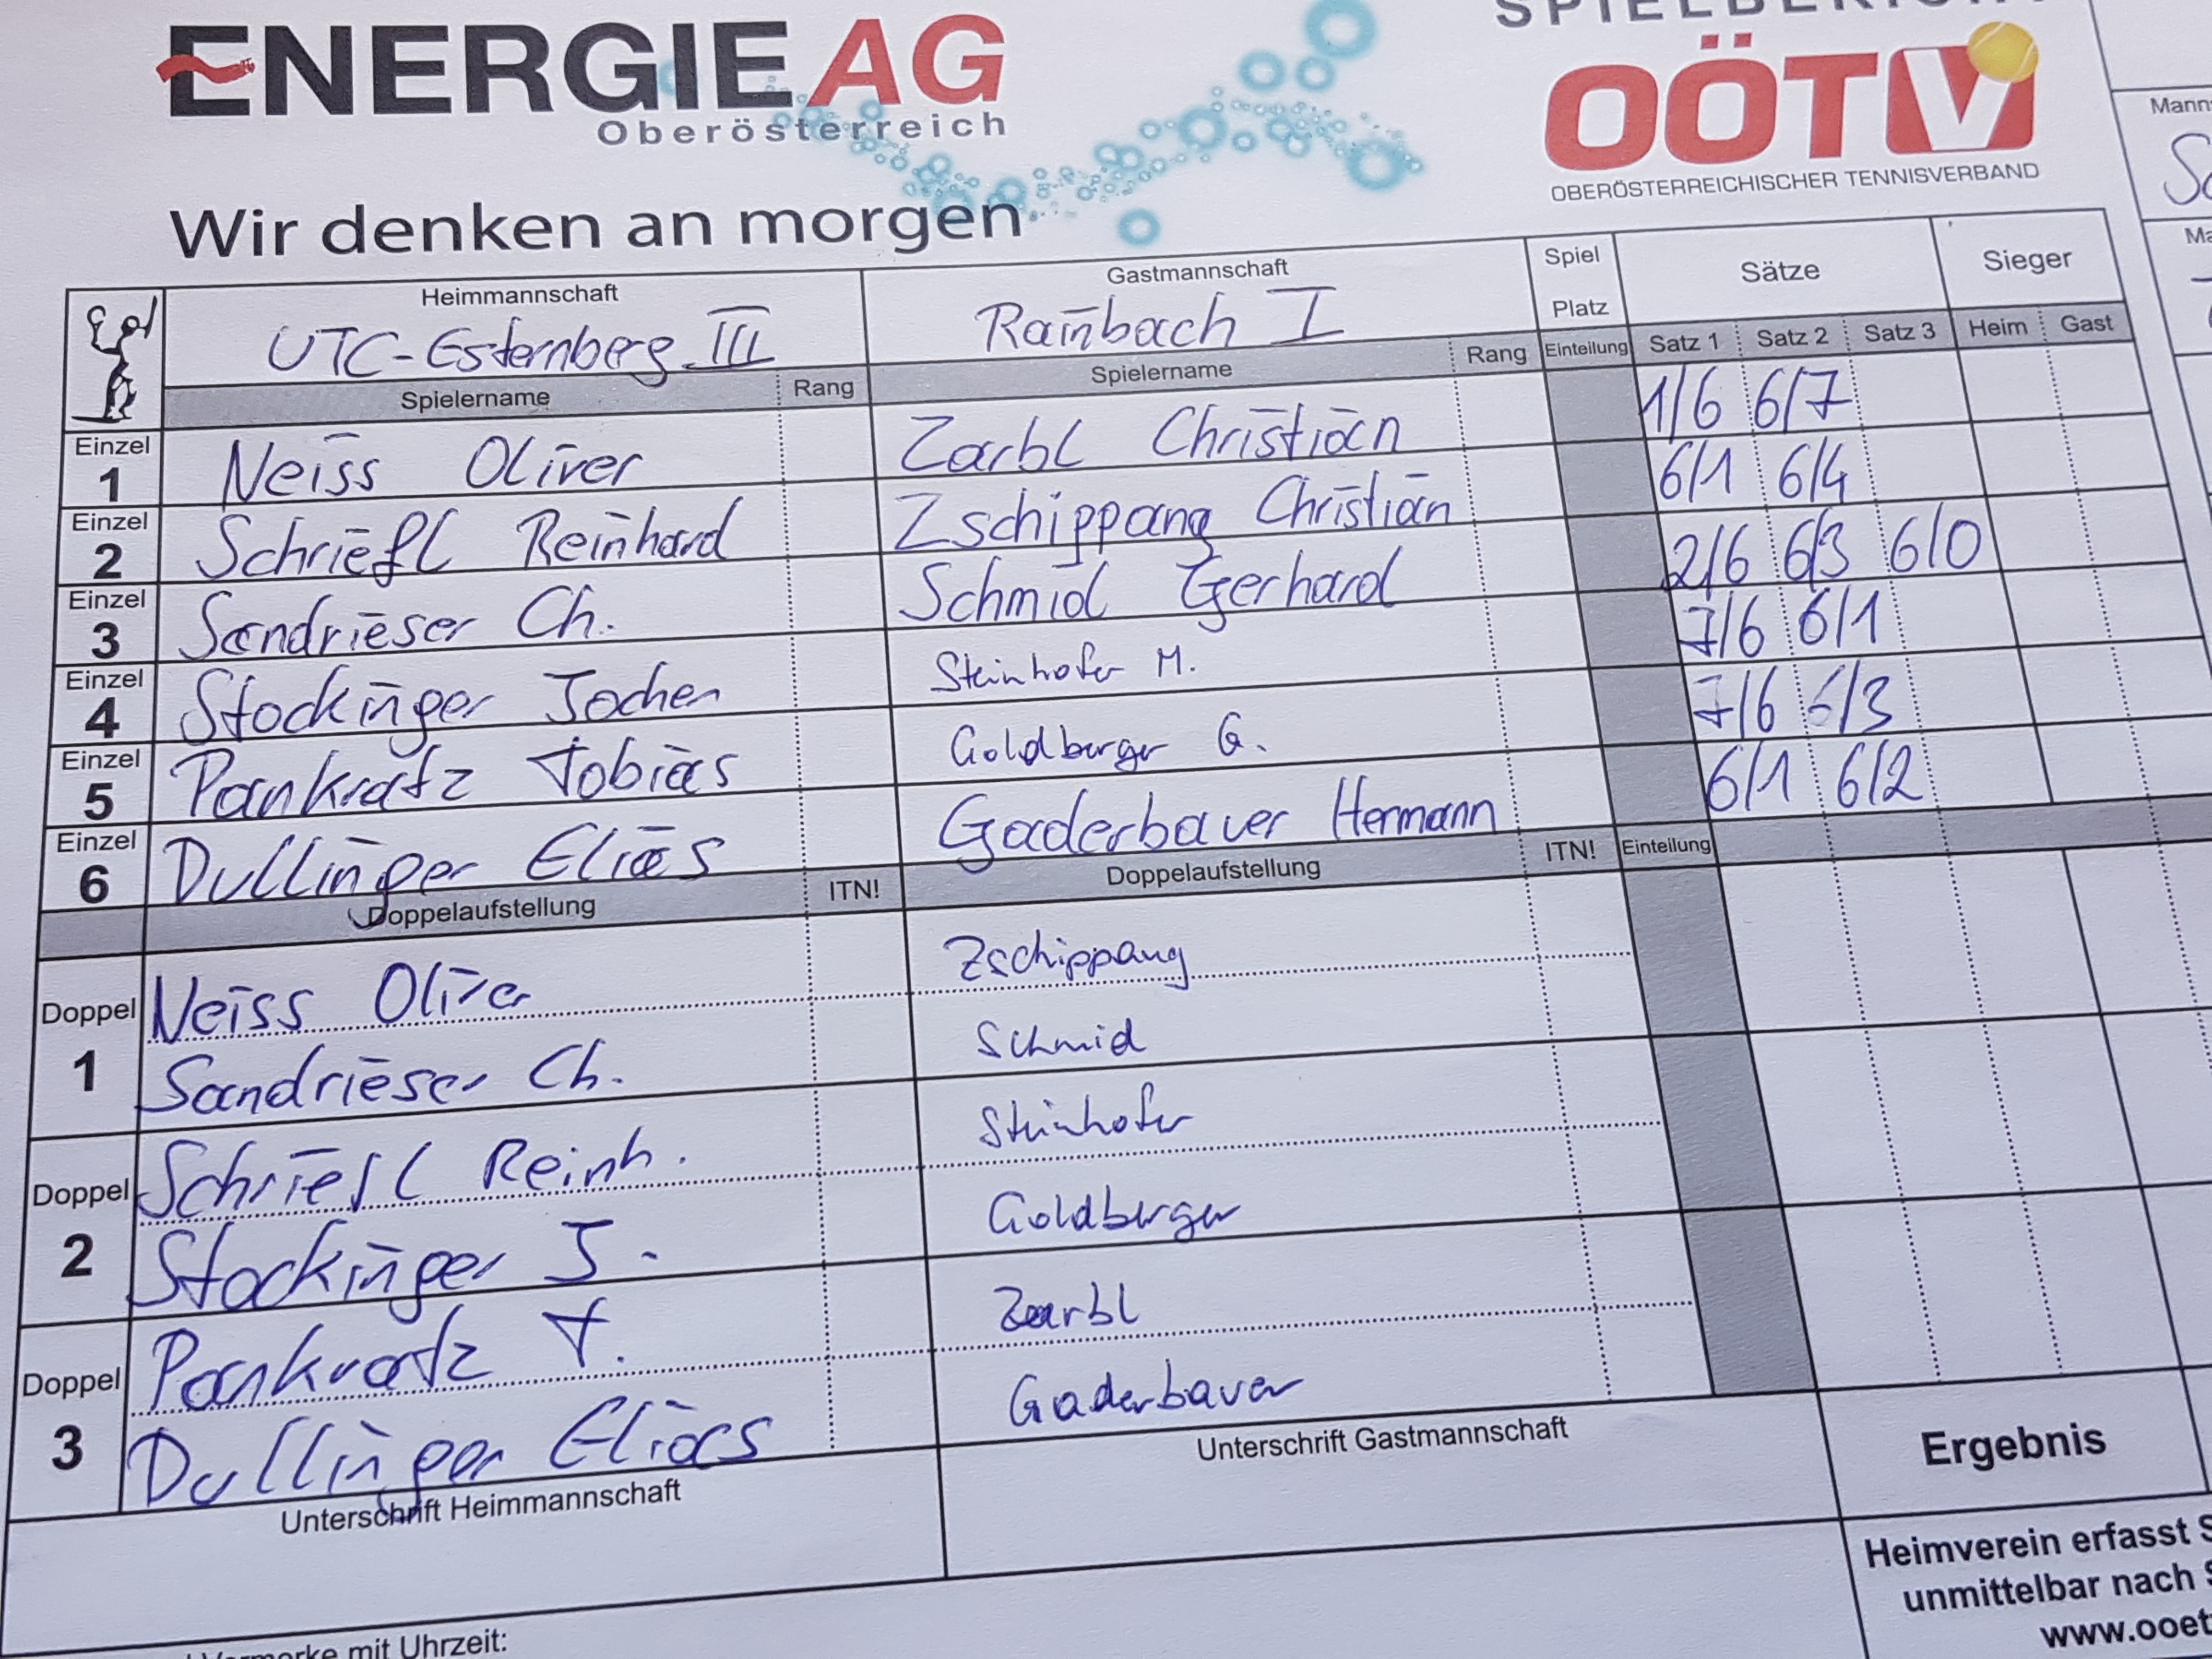 SPIELBERICHT
ENERGIE AG
Oberösterreich
Wir denken an morgen
OÖTV
OBERÖSTERREICHISCHER TENNISVERBAND
Heimmannschaft Gastmannschaft Spiel Platz Sätze Sieger
UTC-Esternberg III Rainbach I
Spielername Rang Spielername Rang Einteilung Satz 1 Satz 2 Satz 3 Heim Gast
Einzel 1 Neiss Oliver Zarbl Christian 1/6 6/7
Einzel 2 Schriefl Reinhard Zschippang Christian 6/1 6/4
Einzel 3 Sandrieser Ch. Schmid Gerhard 2/6 6/3 6/0
Einzel 4 Stockinger Jochen Steinhofer M. 7/6 6/1
Einzel 5 Pankratz Tobias Goldberger G. 7/6 6/3
Einzel 6 Dullinger Elias Gaderbauer Hermann 6/1 6/2
Doppelaufstellung ITN! Doppelaufstellung ITN! Einteilung
Doppel 1 Neiss Oliver Zschippang
Sandrieser Ch. Schmid
Doppel 2 Schriefl Reinh. Steinhofer
Stockinger J. Goldberger
Doppel 3 Pankratz T. Zarbl
Dullinger Elias Gaderbauer
Unterschrift Heimmannschaft Unterschrift Gastmannschaft Ergebnis
Heimverein erfasst
unmittelbar nach
www.ooet
mit Uhrzeit: